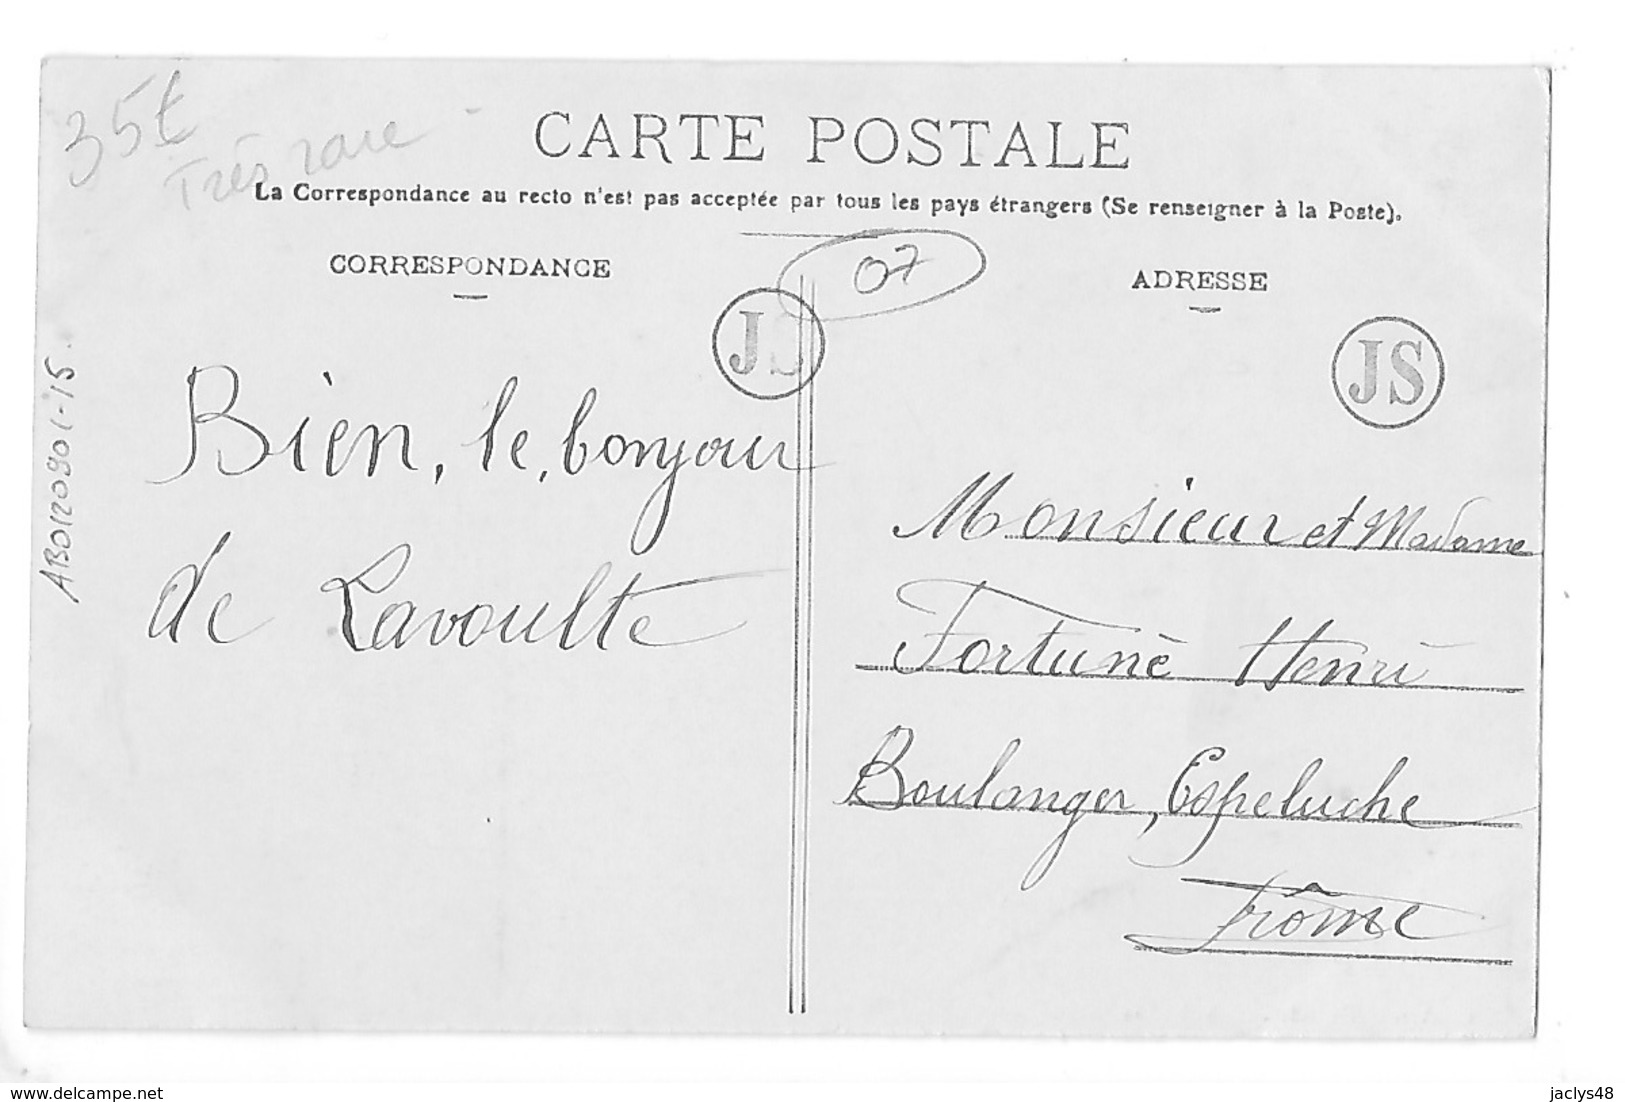 35€
Très rare
CARTE POSTALE
La Correspondance au recto n'est pas acceptée par tous les pays étrangers (Se renseigner à la Poste).
CORRESPONDANCE
07
ADRESSE
JS
JS
AB0120901-15.
Bien, le, bonjour
de Lavoulte
Monsieur et Madame
Fortuné Henri
Boulanger, Espeluche
Drôme
www.delcampe.net
jaclys48